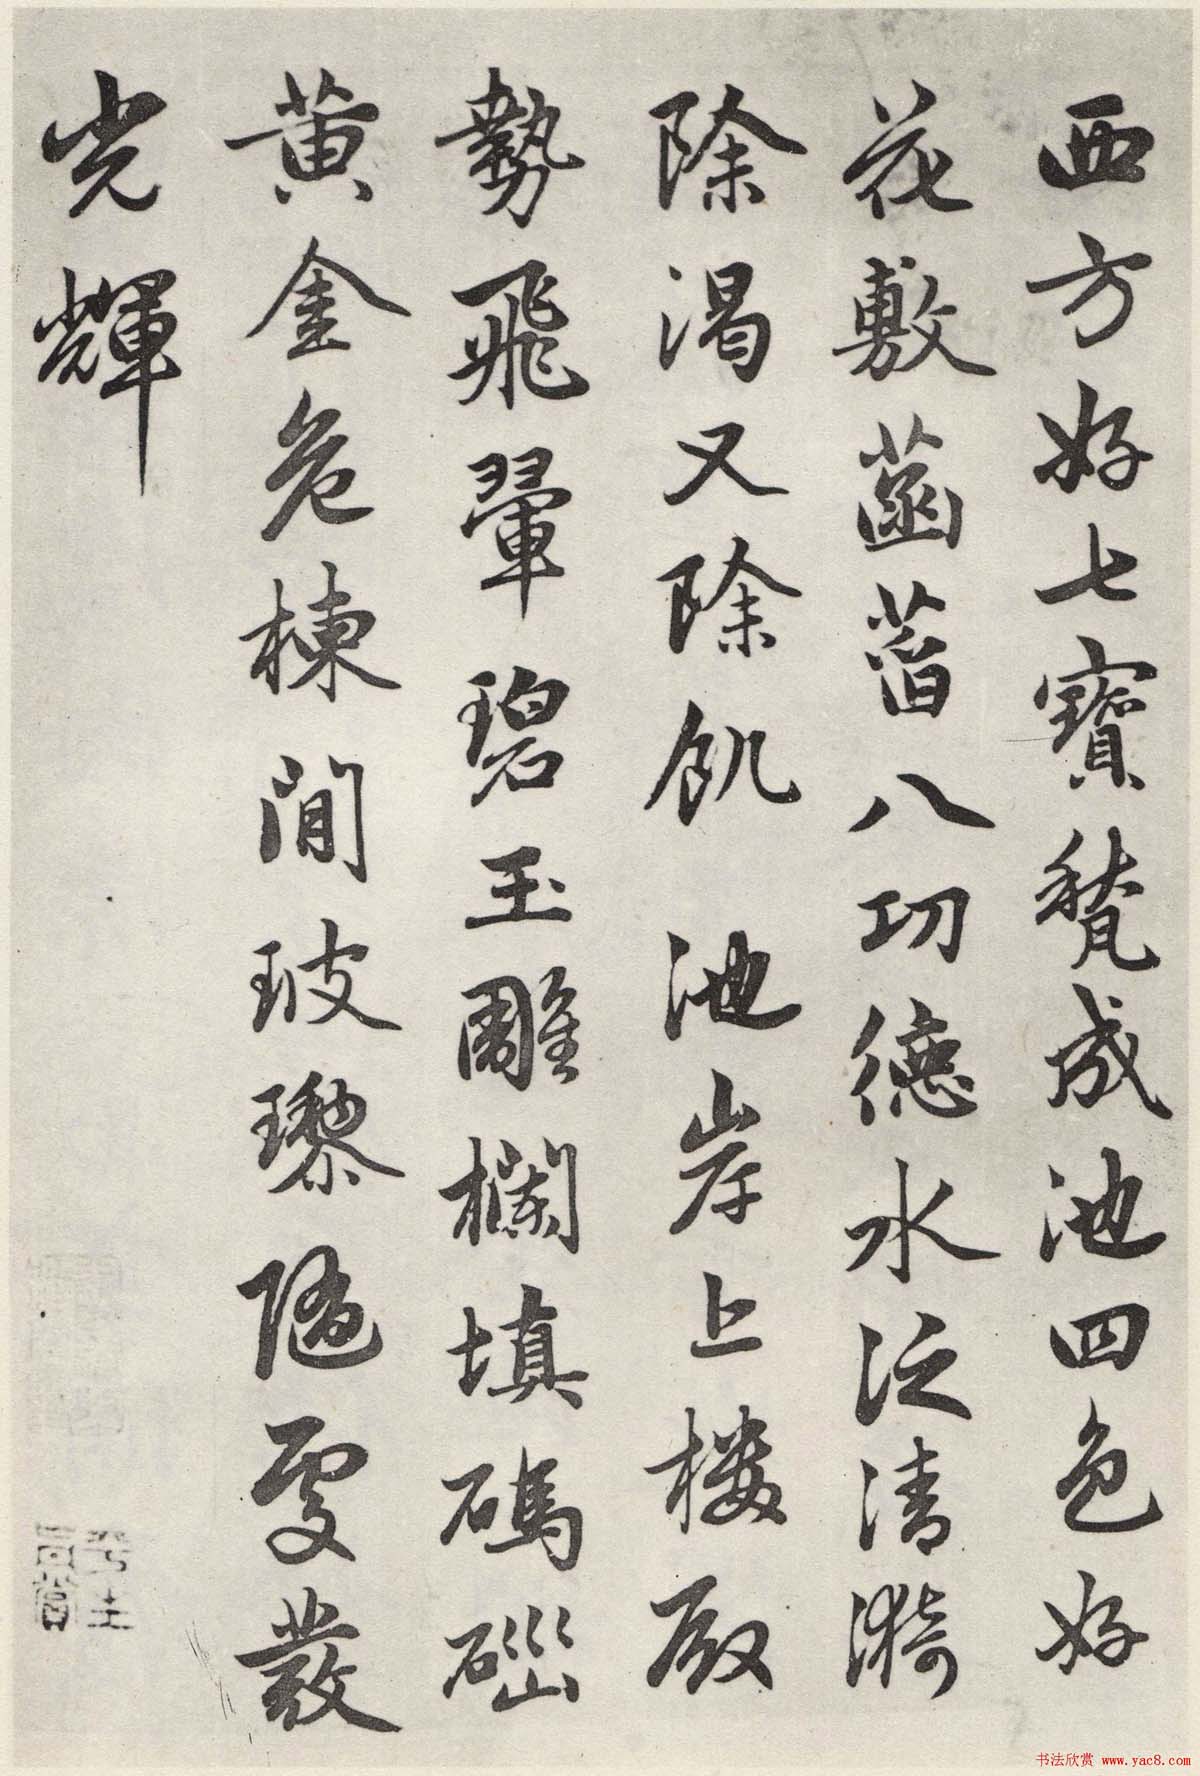 西方好七寶甃成池四色好
花敷菡萏八功德水泛清漪
除渴又除飢 池岸上樓殿
勢飛翬碧玉雕欄填碼碯
黃金危棟間玻瓈隨處發
光輝
书法欣赏 www.yac8.com